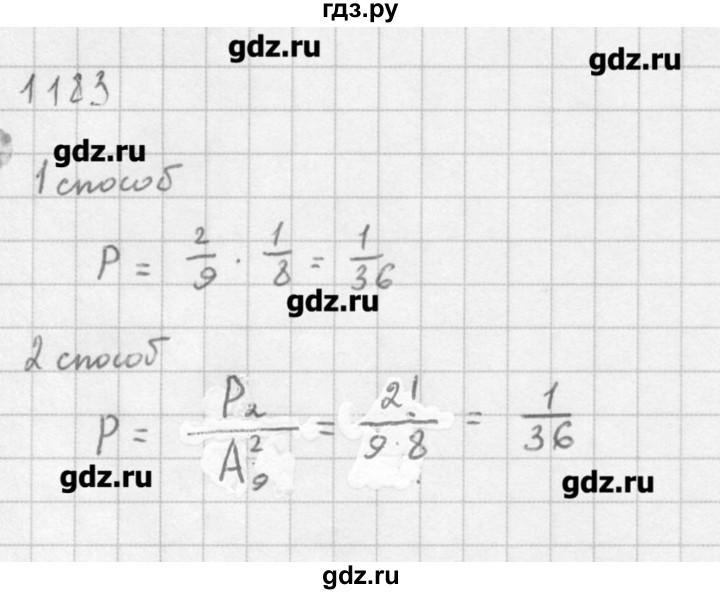 гдз.ру
gdz.ru
gdz.ru
1183
gdz.ru
1 способ
P = 2/9 · 1/8 = 1/36
gdz.ru
2 способ
P = P₂/A₉² = 2!/(9·8) = 1/36
gdz.ru
gdz.ru
gdz.ru